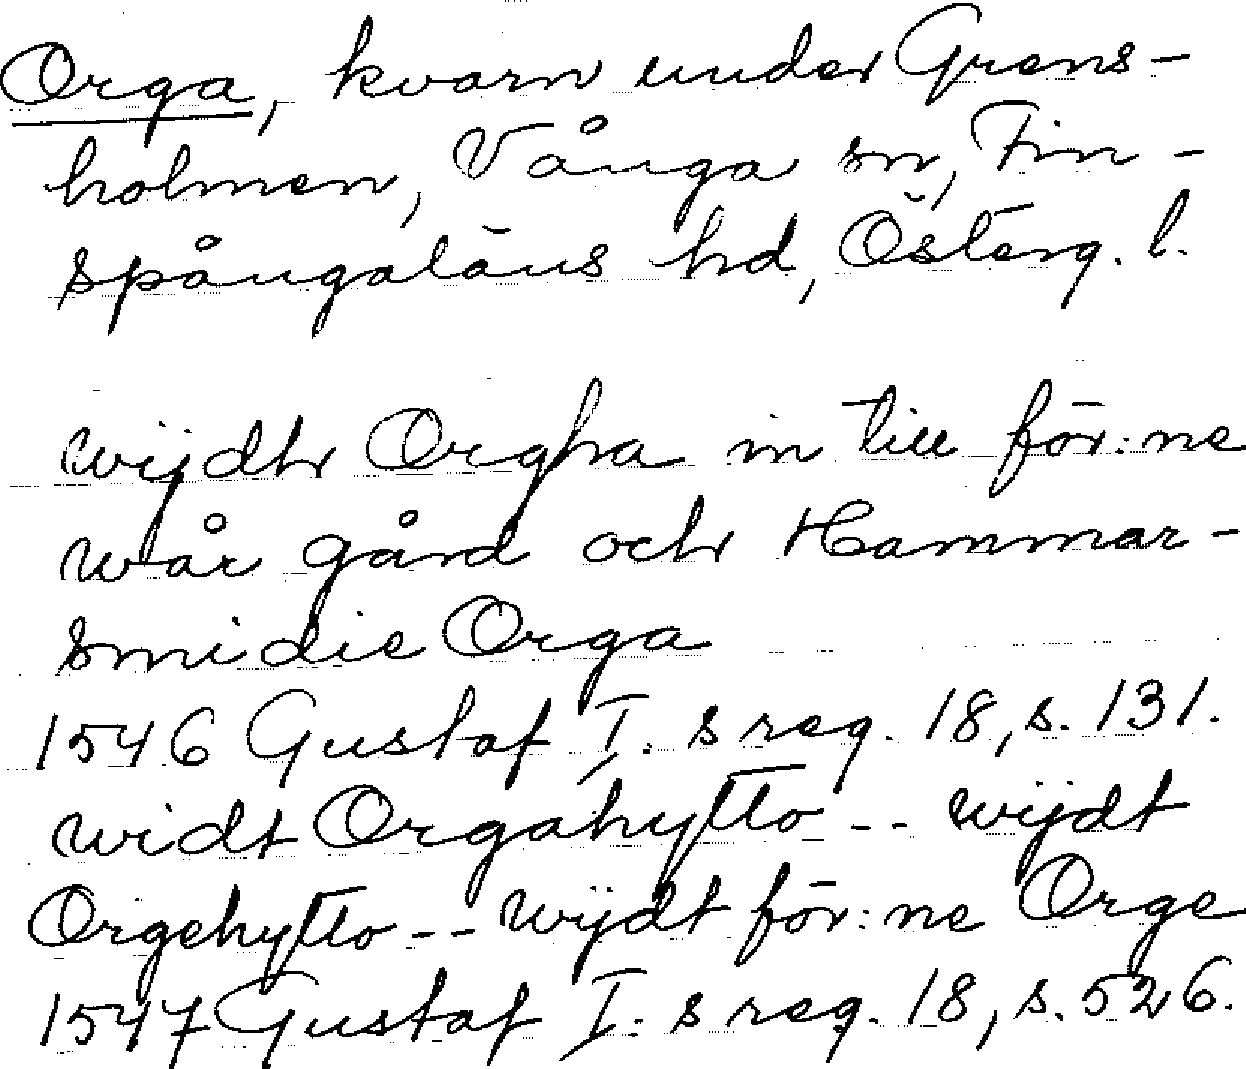 Orga, kvarn under Grens-
holmen, Vånga sn, Fin-
spångaläns hd, Österg. l.
wijdh Orgha in till för:ne
wår gård och Hammar-
smidie Orga
1546 Gustaf I. s reg. 18, s. 131.
widt Orgahytto -- wijdt
Orgehytto -- wijdt för:ne Orge
1547 Gustaf I. s reg. 18, s. 526.